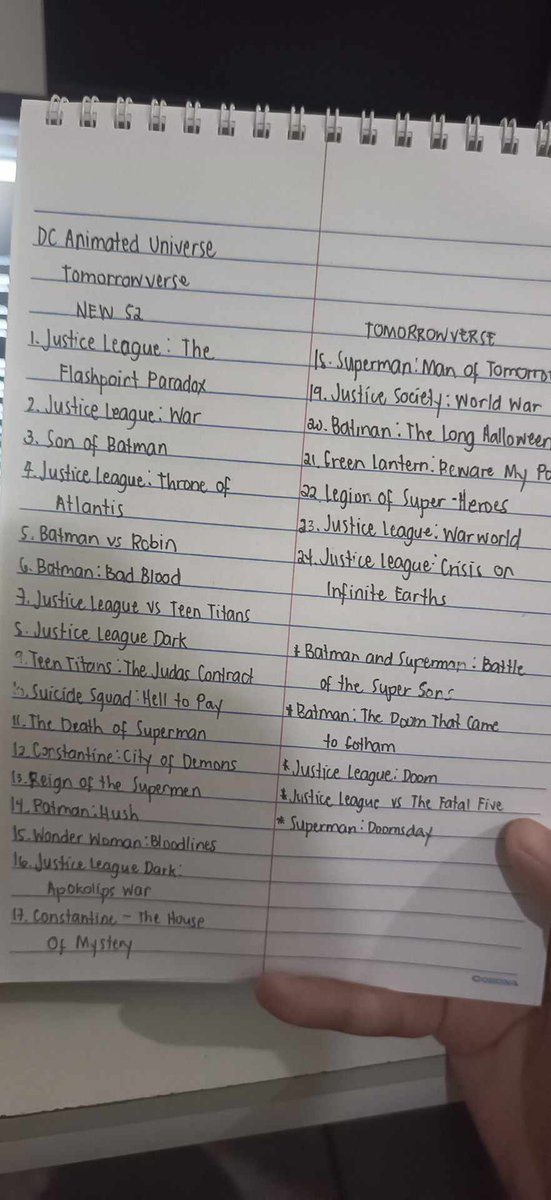 DC Animated Universe
Tomorrowverse
NEW 52
1. Justice League: The
Flashpoint Paradox
2. Justice League: War
3. Son of Batman
4. Justice League: Throne of
Atlantis
5. Batman vs Robin
6. Batman: Bad Blood
7. Justice League vs Teen Titans
8. Justice League Dark
9. Teen Titans: The Judas Contract
10. Suicide Squad: Hell to Pay
11. The Death of Superman
12. Constantine: City of Demons
13. Reign of the Supermen
14. Batman: Hush
15. Wonder Woman: Bloodlines
16. Justice League Dark:
Apokolips War
17. Constantine - The House
Of Mystery
TOMORROWVERSE
18. Superman: Man of Tomorro
19. Justice Society: World War
20. Batman: The Long Halloween
21. Green Lantern: Beware My Po
22. Legion of Super-Heroes
23. Justice League: Warworld
24. Justice league: Crisis on
Infinite Earths
* Batman and Superman: Battle
of the Super Sons
* Batman: The Doom That Came
to Gotham
* Justice League: Doom
* Justice League vs The Fatal Five
* Superman: Doomsday
CORONA